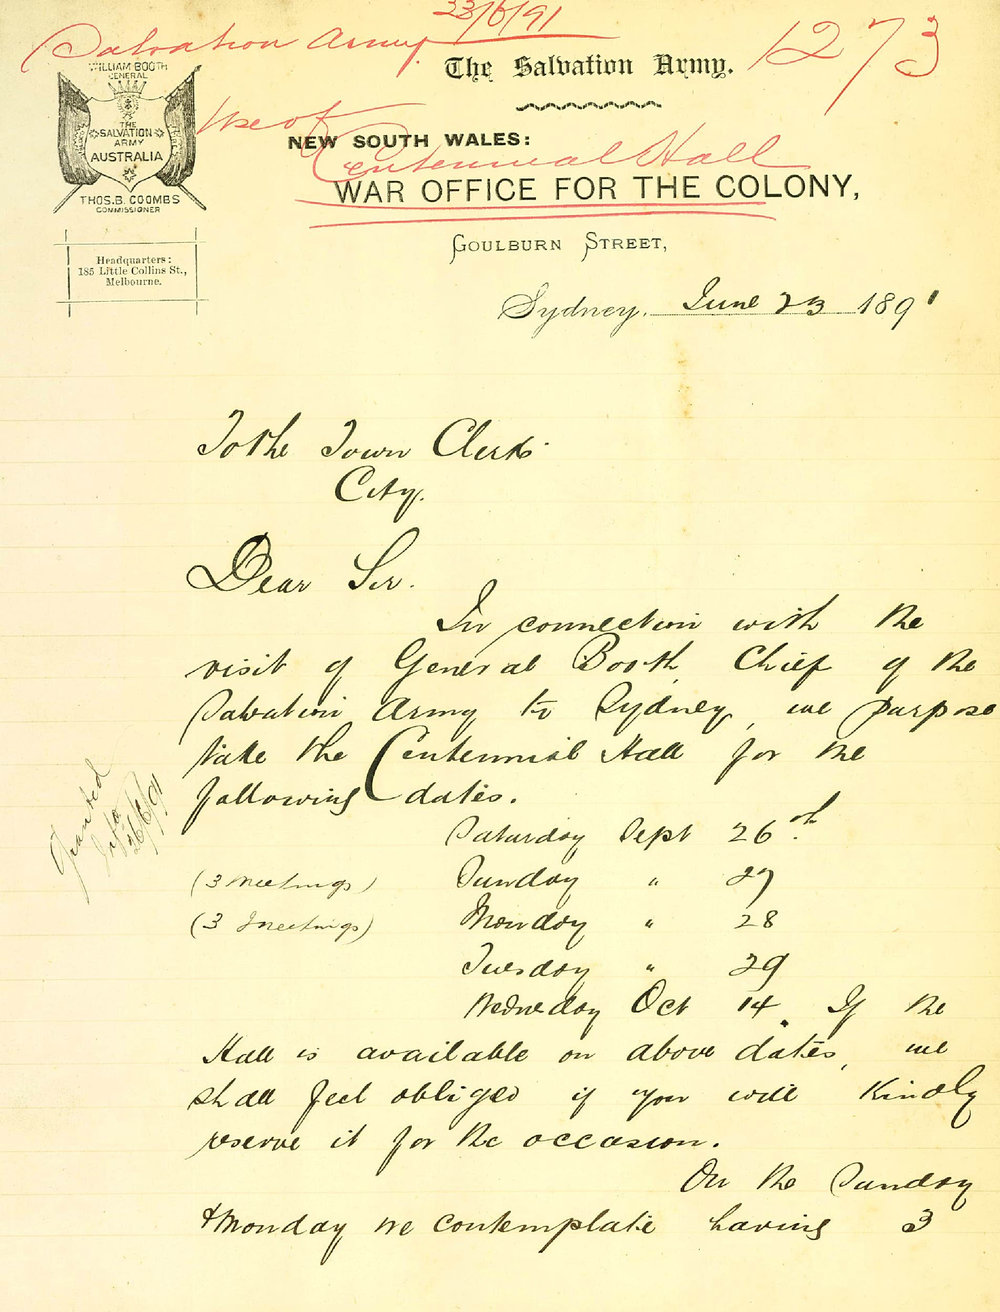 23/6/91
Salvation Army
1273
The Salvation Army.
WILLIAM BOOTH
GENERAL
THE
SALVATION
ARMY
AUSTRALIA
THOS. B. COOMBS
COMMISSIONER
Use of
NEW SOUTH WALES:
Centennial Hall
WAR OFFICE FOR THE COLONY,
GOULBURN STREET,
Headquarters:
185 Little Collins St.,
Melbourne.
Sydney, June 23 1891
To the Town Clerk
City.
Dear Sir.
In connection with the
visit of General Booth, Chief of the
Salvation Army to Sydney, we purpose
take the Centennial Hall for the
following dates.
Granted
26/6/91
Saturday Sept 26th
(3 meetings) Sunday " 27
(3 meetings) Monday " 28
Tuesday " 29
Wednesday Oct 14. If the
Hall is available on above dates, we
shall feel obliged if you will kindly
reserve it for the occasion.
On the Sunday
& Monday we contemplate having 3